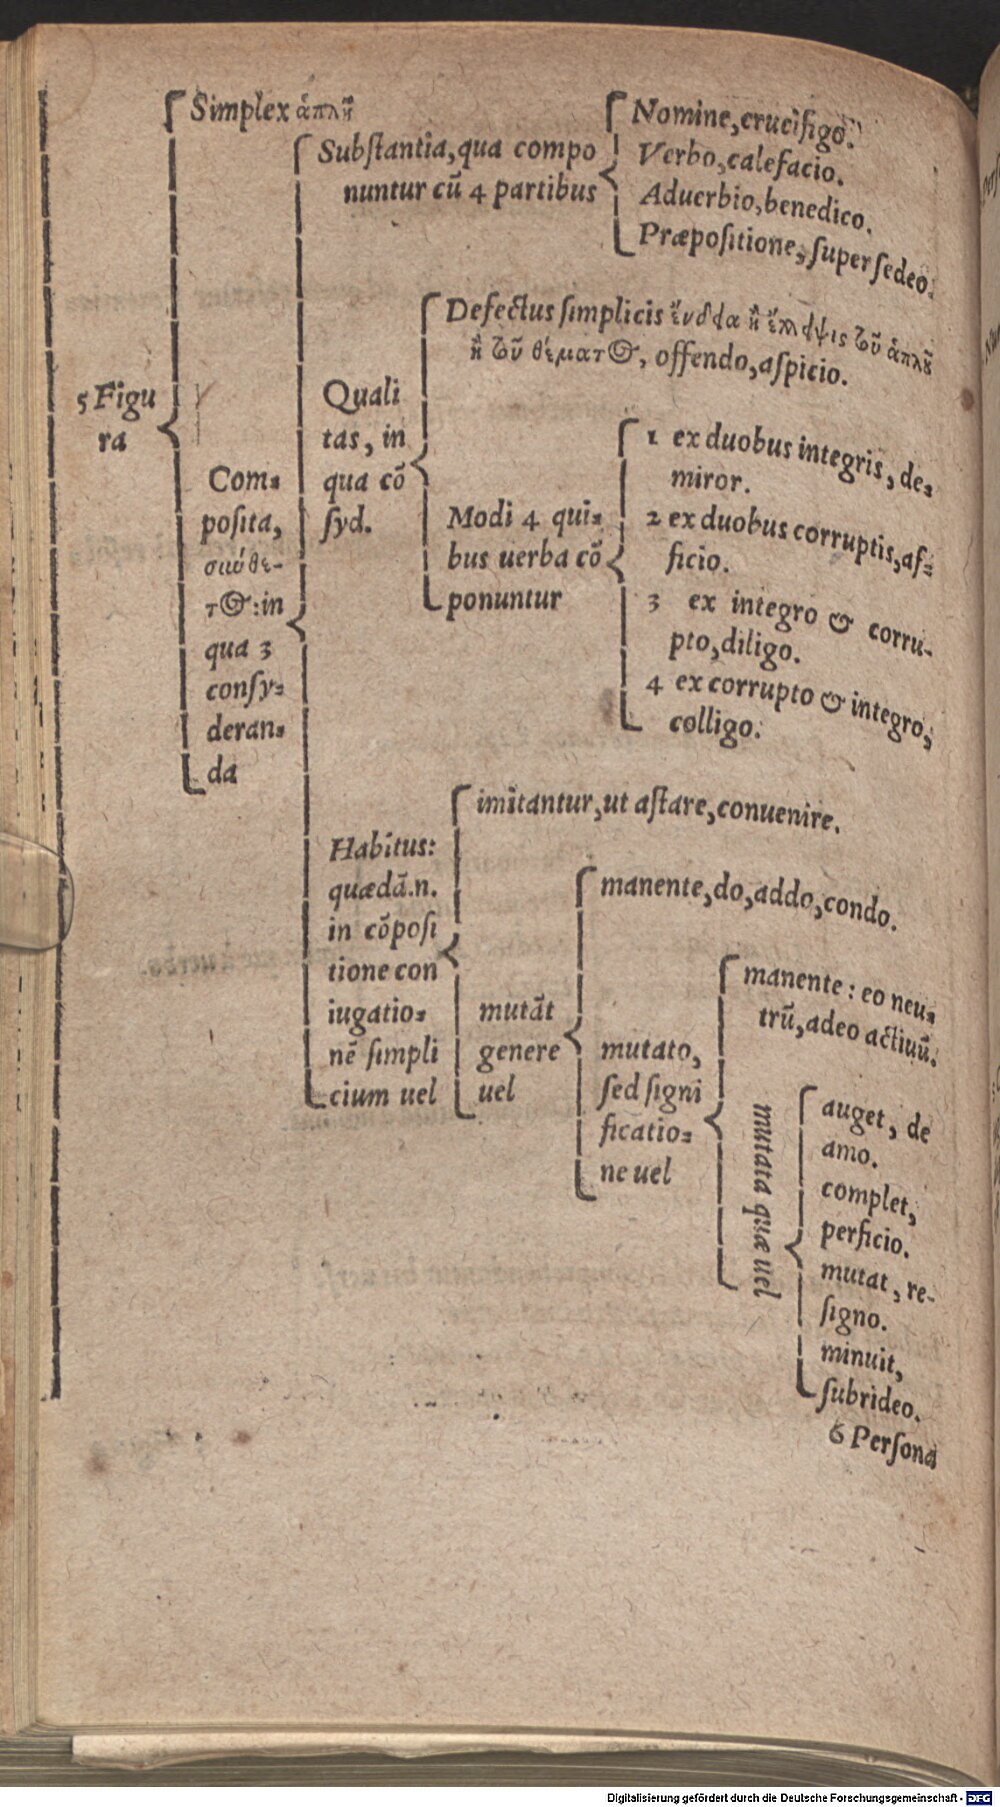 5 Figu
ra
Simplex ἁπλῆ
Com-
posita,
σύνθε-
τος: in
qua 3
consy-
deran-
da
Substantia, qua compo
nuntur cū 4 partibus
Nomine, crucifigo.
Verbo, calefacio.
Aduerbio, benedico.
Præpositione, supersedeo.
Quali
tas, in
qua cō
syd.
Defectus simplicis ἔνδεια ἢ ἔλλειψις τοῦ ἁπλοῦ
ἢ τοῦ θέματος, offendo, aspicio.
Modi 4 qui-
bus uerba cō
ponuntur
1 ex duobus integris, de-
miror.
2 ex duobus corruptis, af-
ficio.
3 ex integro & corru-
pto, diligo.
4 ex corrupto & integro,
colligo.
Habitus:
quædā.n.
in cōposi
tione con
iugatio-
nē simpli
cium uel
imitantur, ut astare, conuenire.
mutāt
genere
uel
manente, do, addo, condo.
mutato,
sed signi
ficatio-
ne uel
manente: eo neu-
trū, adeo actiuū.
mutata quæ uel
auget, de
amo.
complet,
perficio.
mutat, re-
signo.
minuit,
subrideo.
6 Persona
Digitalisierung gefördert durch die Deutsche Forschungsgemeinschaft - DFG